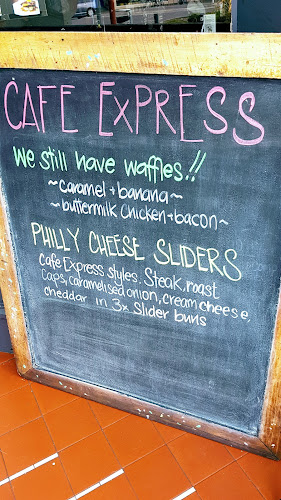 CAFE EXPRESS
We still have waffles!!
~caramel+banana~
~buttermilk chicken+bacon~
PHILLY CHEESE SLIDERS
Cafe Express styles. Steak, roast
caps, caramelised onion, cream cheese,
cheddar in 3x slider buns